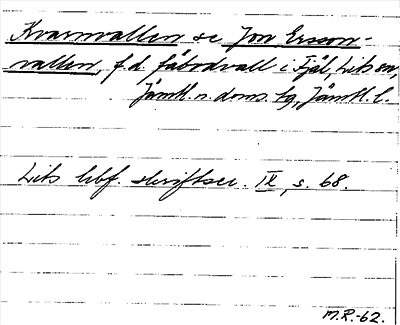 Kvarnvallen se Jon Ersson-
vallen, f.d. fäbodvall i Fjäl, Lits sn,
Jämtl. n. doms. tg, Jämtl. l.
Lits hbf. skriftser. IX, s. 68.
M.R.-62.